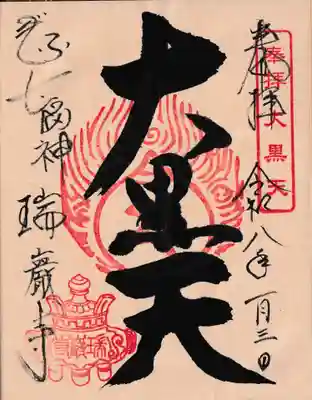 奉拝大黒天
奉拝 令和八年一月三日
大黒天
ぎふ七福神 瑞巖寺